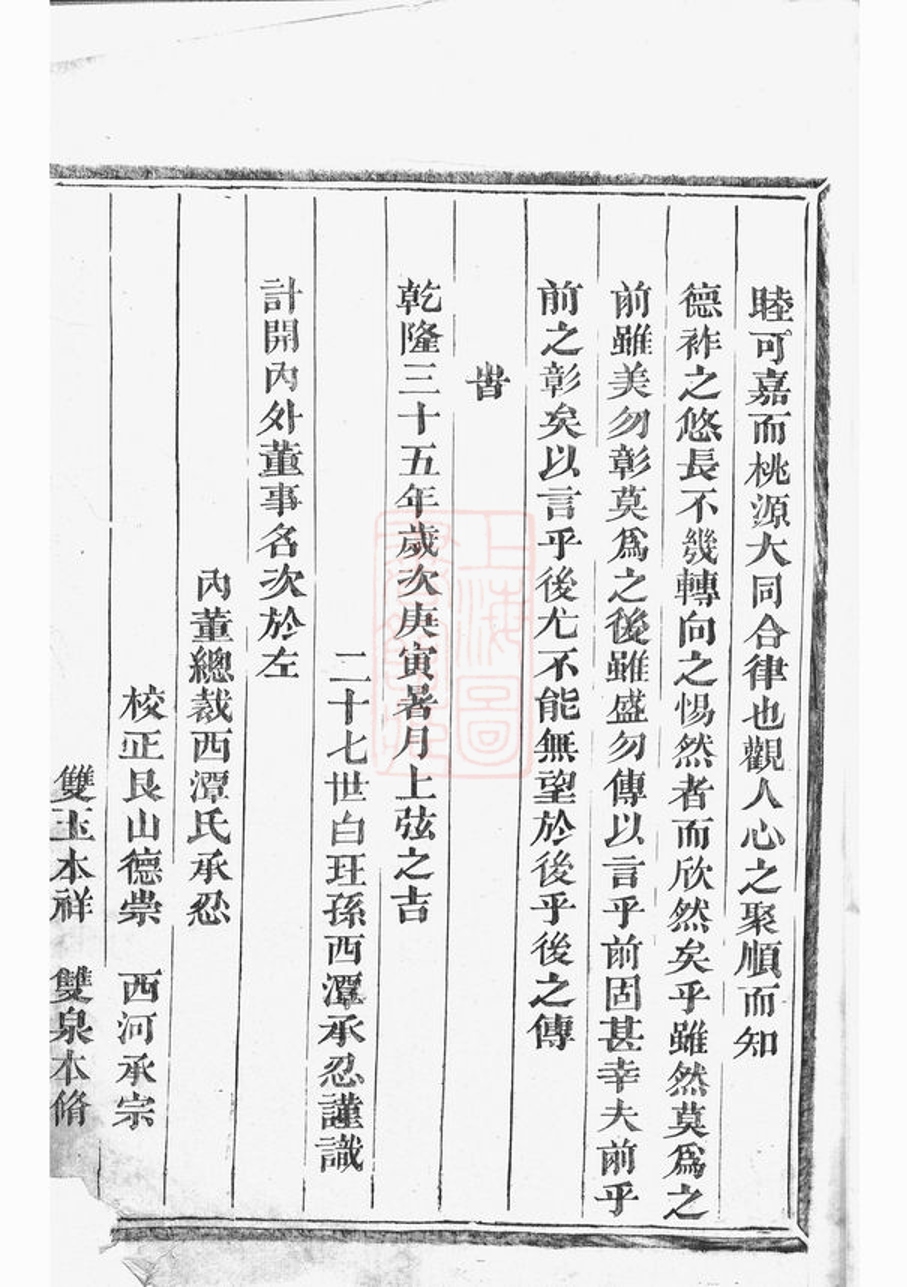 睦可嘉而桃源大同合律也觀人心之聚順而知
德祚之悠長不幾轉向之惕然者而欣然矣乎雖然莫為之
前雖美勿彰莫為之後雖盛勿傳以言乎前固甚幸夫前乎
前之彰矣以言乎後尤不能無望於後乎後之傳
旹
乾隆三十五年歲次庚寅暑月上弦之吉
二十七世白玨孫西潭承忍謹識
計開內外董事名次於左
內董總裁西潭氏承忍
校正艮山德崇 西河承宗
雙玉本祥 雙泉本脩
上海圖